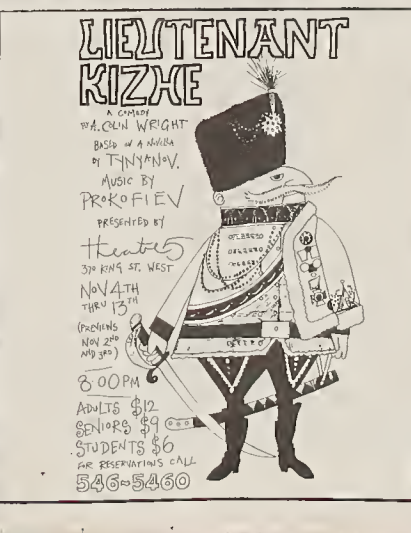 LIEUTENANT
KIZHE
A COMEDY
BY A. COLIN WRIGHT
BASED ON A NOVELLA
BY TYNYANOV.
MUSIC BY
PROKOFIEV
PRESENTED BY
theatre 5
370 KING ST. WEST
NOV 4TH
THRU 13TH
(PREVIEWS
NOV 2ND
AND 3RD)
8:00 PM
ADULTS $12
SENIORS $9
STUDENTS $6
FOR RESERVATIONS CALL
546-5460